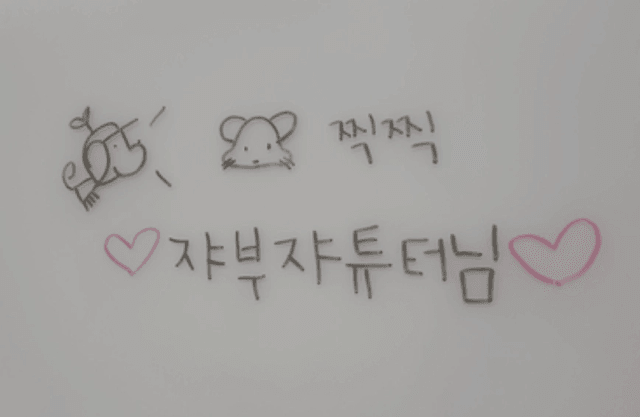 찍찍
쟈부쟈튜터님